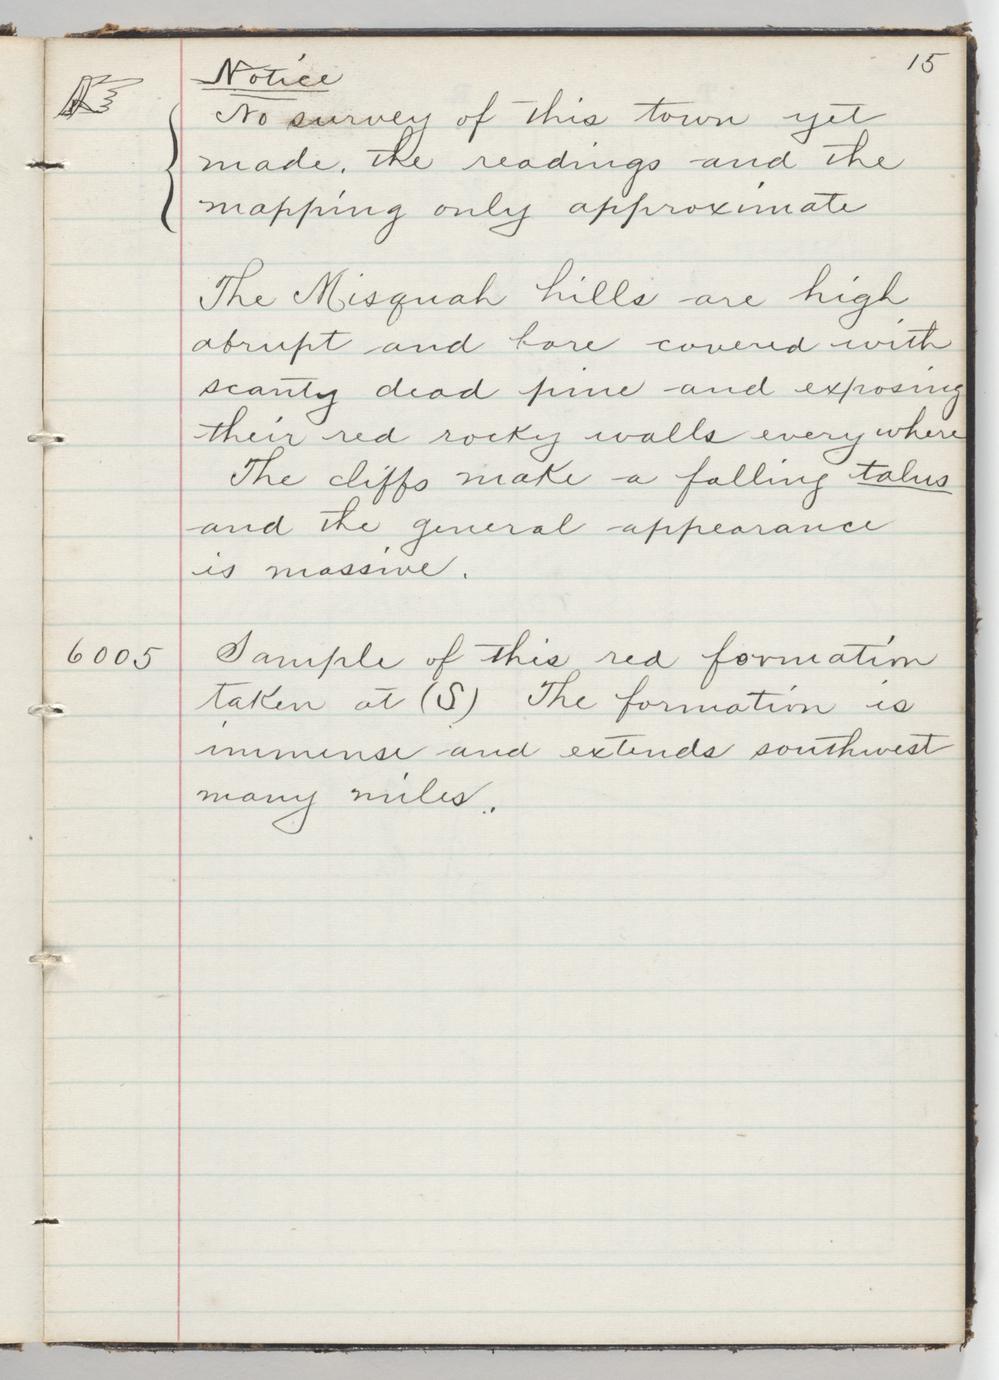 15
Notice
No survey of this town yet
made. the readings and the
mapping only approximate
The Misquah hills are high
abrupt and bare covered with
scanty dead pine and exposing
their red rocky walls everywhere
The cliffs make a falling talus
and the general appearance
is massive.
6005 Sample of this red formation
taken at (S) The formation is
immense and extends southwest
many miles.